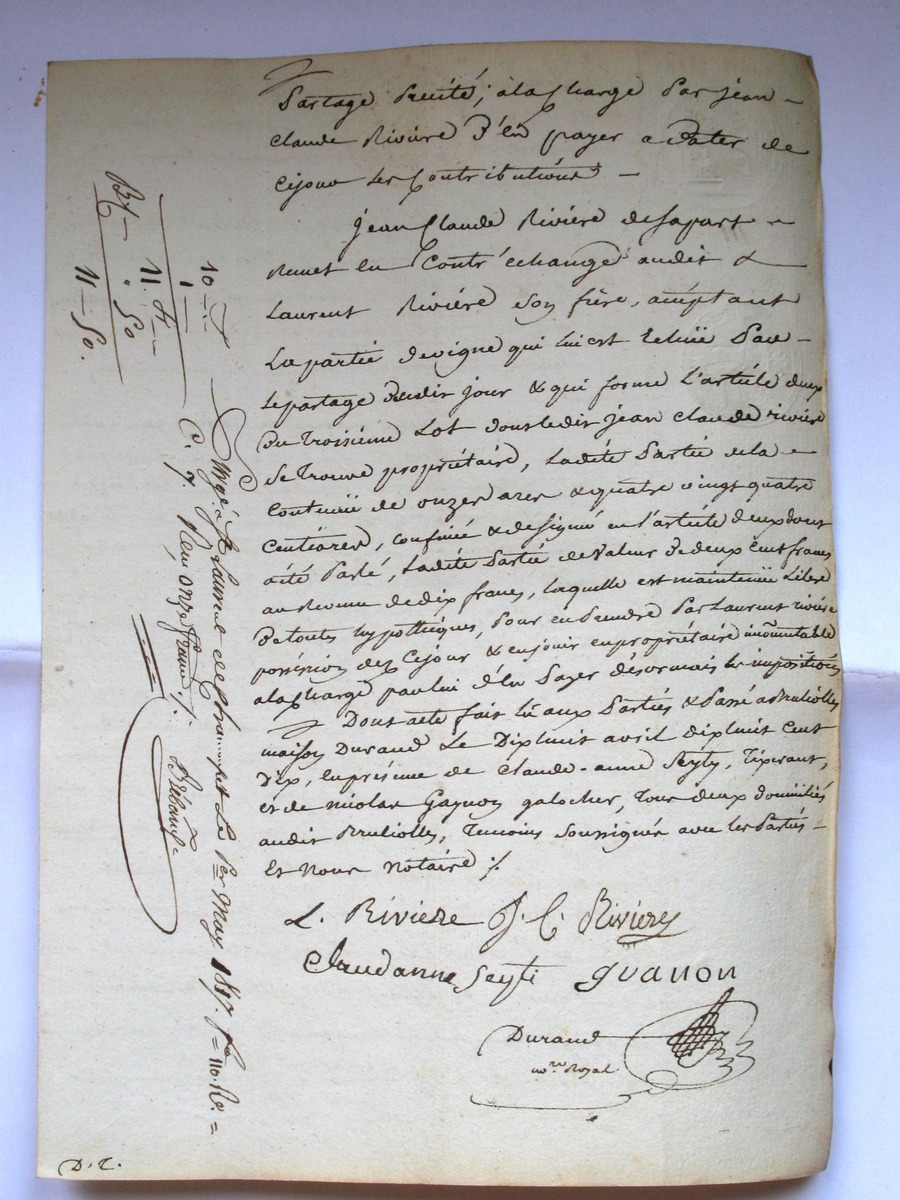 Partage précité, à la charge par jean
claude Rivière d'en payer a dater de
cejour les Contributions
jean Claude Rivière de sa part
Remet en Contr'échange audit
Laurent Rivière son frère, acceptant
La partie de vigne qui lui est échüe par
le partage dudit jour & qui forme L'article deux
Du troisième Lot dont ledit jean claude rivière
se trouve propriétaire, Ladite partie de la
Contenüe de onze ares & quatre vingt quatre
Centiares, confinée & designée en l'article deux dont
a été parlé, Ladite partie de valeur de deux cent francs
au Revenu de dix francs, laquelle est maintenüe Libre
De toutes hypothèques, pour en prendre par Laurent rivière
possession dez cejour & en jouir en propriétaire incommutable
a la charge par lui d'en payer désormais les impositions
Dont acte fait lu aux parties & passé a Brulliolles
maison Durand Le Dix huit avril dix huit cent
Dix, en présence de Claude-anne Seyty, Tixerant,
et de nicolas Gagnon galocher, tous deux domiciliés
audit Brulliolles, temoins soussignés avec les parties
Et nous notaire ./.
L. RiviERE J. C. Riviere
Claudanne Seyti gvanon
Durand
no.re Royal
10 -
1 -
11. f. -
" 50
11 - 50.
St Laurent de Chamousset Le 1er May 18
Reçu onze francs
D. T.